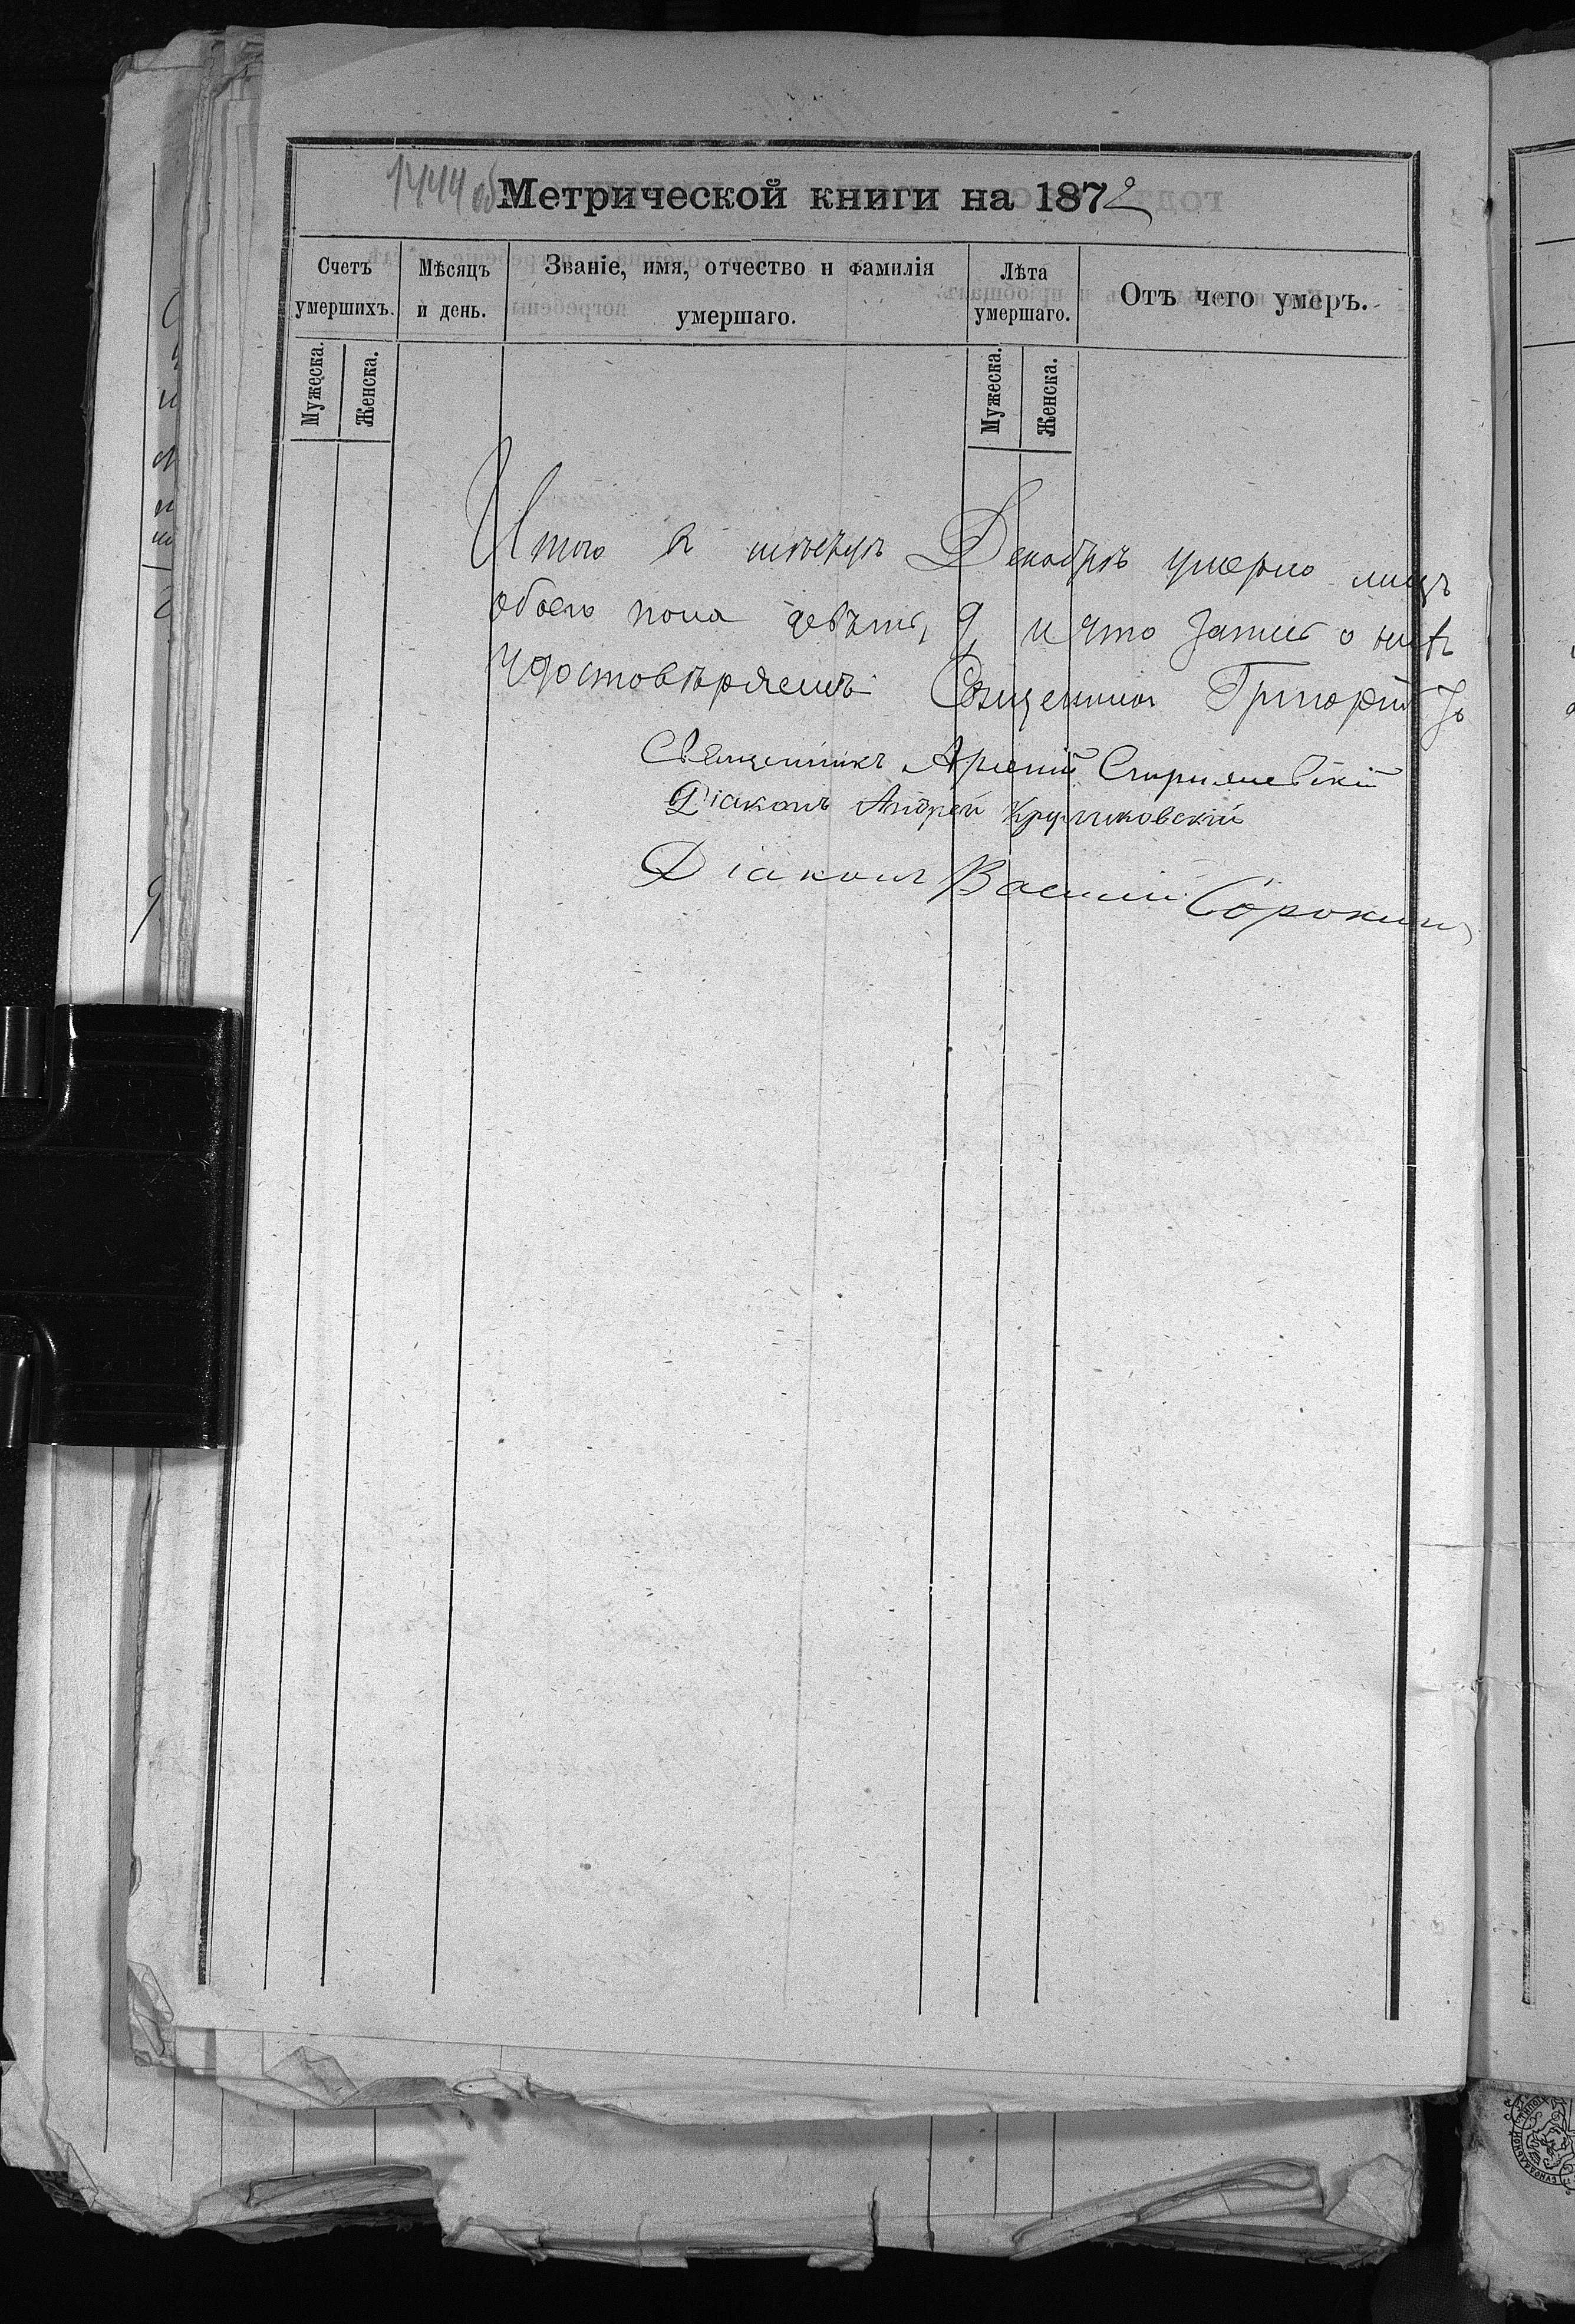 1444 об
Метрической книги на 1872
Счетъ умершихъ.
Мѣсяцъ и день.
Званіе, имя, отчество и фамилія умершаго.
Лѣта умершаго.
Отъ чего умеръ.
Мужеска.
Женска.
Мужеска.
Женска.
Итого въ мѣсяцѣ Декабрѣ умерло лицъ
обоего пола девять, 9, и что запись о нихъ
удостовѣряемъ Священникъ Григорій
Священникъ Арсеній
Діаконъ Андрей Кругликовскій
Діаконъ Василій Сорокинъ